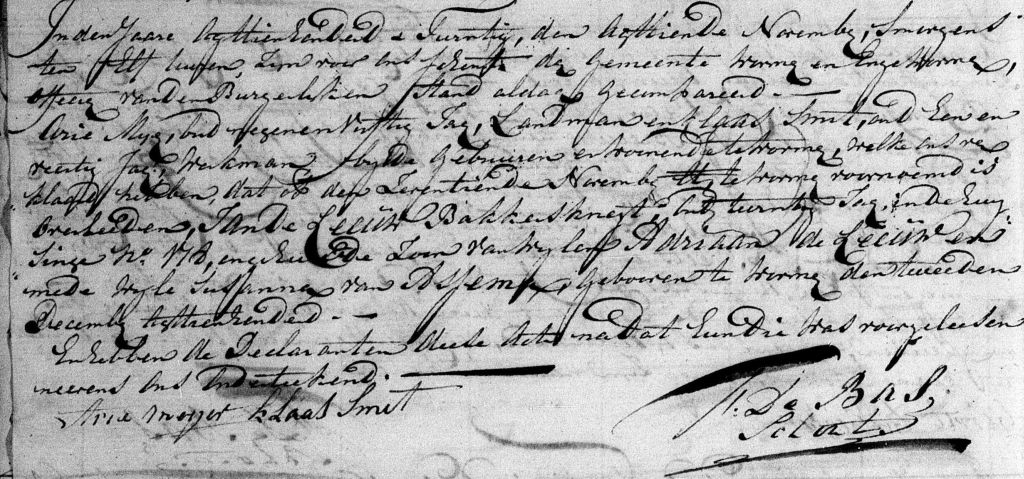 In den Jaare Agttienhonderd & Twintig, den Agttiende November, Smorgens
ten Elf uuren, zijn voor ons Schout der Gemeente Wormer en Enge Wormer,
officier van den Burgerlijken Stand aldaar Gecompareerd. —
Arie Mejer, oud negen en Vijftig Jaar, Landman en Klaas Smit, oud Een en
veertig Jaar, Werkman, beyde Gebuuren en woonende te Wormer, welke ons ver
klaard hebben, dat op den Zeventiende November te Wormer voornoemd is
Overleeden, Jan de Leeüw Bakkersknegt, oud twintig Jaar, in de Huy
singe No. 178, en de Zoon van wylen Adriaan de Leeüw en
mede wyle Susanna van Assema, Gebooren te Wormer den tweeden
December Agttienhonderd. —
En hebben de Declaranten deese Acte na dat hun die was voorgeleesen
neevens ons Ondeteekend.
Arie meyer klaas Smit
De Bas,
Schout.